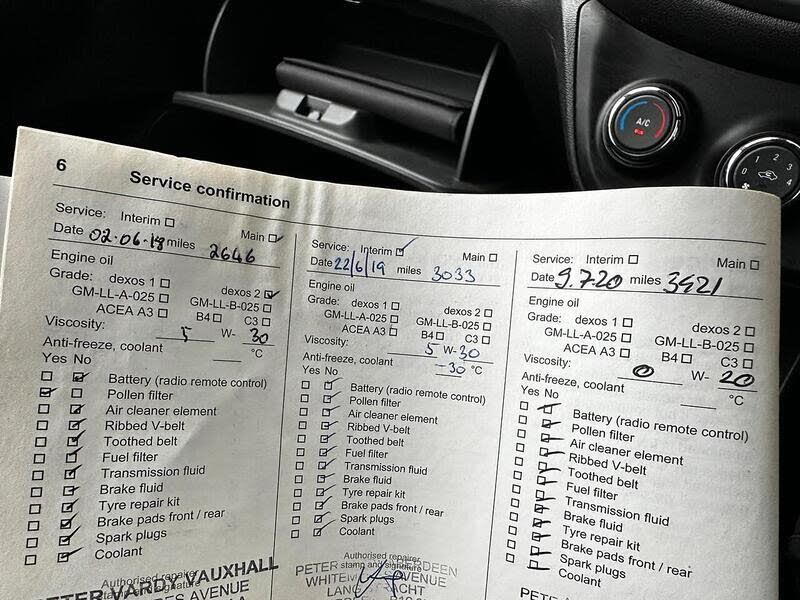 6 Service confirmation
Service: Interim Main
Date 02.06.18 miles 2646
Engine oil
Grade: dexos 1 dexos 2
GM-LL-A-025 GM-LL-B-025
ACEA A3 B4 C3
Viscosity: 5 W- 30
Anti-freeze, coolant °C
Yes No
Battery (radio remote control)
Pollen filter
Air cleaner element
Ribbed V-belt
Toothed belt
Fuel filter
Transmission fluid
Brake fluid
Tyre repair kit
Brake pads front / rear
Spark plugs
Coolant
Authorised repairer
stamp and signature
PETER VARDY VAUXHALL
AVENUE
Service: Interim Main
Date 22/6/19 miles 3033
Engine oil
Grade: dexos 1 dexos 2
GM-LL-A-025 GM-LL-B-025
ACEA A3 B4 C3
Viscosity: 5 W- 30
Anti-freeze, coolant -30 °C
Yes No
Battery (radio remote control)
Pollen filter
Air cleaner element
Ribbed V-belt
Toothed belt
Fuel filter
Transmission fluid
Brake fluid
Tyre repair kit
Brake pads front / rear
Spark plugs
Coolant
Authorised repairer
stamp and signature
PETER ABERDEEN
AVENUE
Service: Interim Main
Date 9.7.20 miles 3421
Engine oil
Grade: dexos 1 dexos 2
GM-LL-A-025 GM-LL-B-025
ACEA A3 B4 C3
Viscosity: 0 W- 20
Anti-freeze, coolant °C
Yes No
Battery (radio remote control)
Pollen filter
Air cleaner element
Ribbed V-belt
Toothed belt
Fuel filter
Transmission fluid
Brake fluid
Tyre repair kit
Brake pads front / rear
Spark plugs
Coolant
A/C
0 1 2 3 4